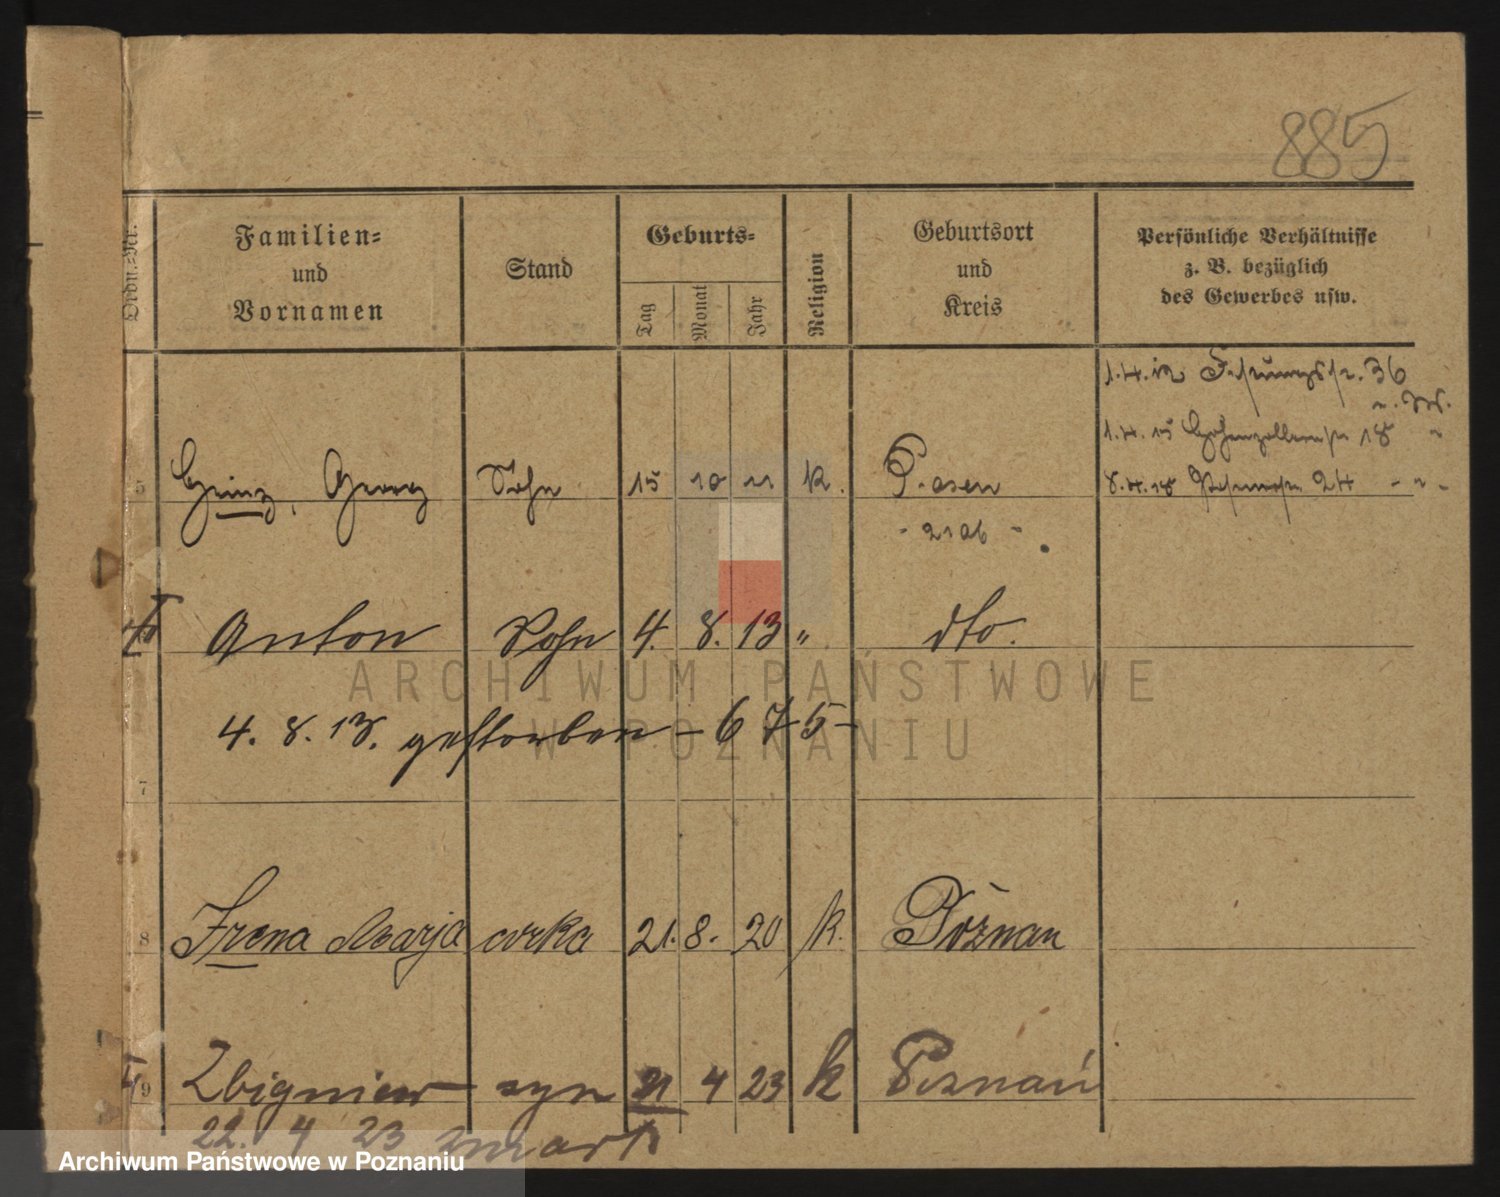 885
Ordn.-Nr.
Familien-
und
Vornamen
Stand
Geburts-
Tag
Monat
Jahr
Religion
Geburtsort
und
Kreis
Persönliche Verhältnisse
z. B. bezüglich
des Gewerbes usw.
1.4.12 Festungsstr. 36
1.4.15 Hohenzollernstr 18 "
5 Heinz, Georg Sohn 15 10 11 k. Posen 8.4.18 24 - " -
- 2106 -
Anton Sohn 4. 8. 13 " dto.
4. 8. 13. gestorben - 675 -
7
8 Irena Marja córka 21. 8. 20 k. Poznań
9 Zbigniew syn 21 4 23 k Poznań
22. 4 23 zmarł
ARCHIWUM PAŃSTWOWE
W POZNANIU
Archiwum Państwowe w Poznaniu